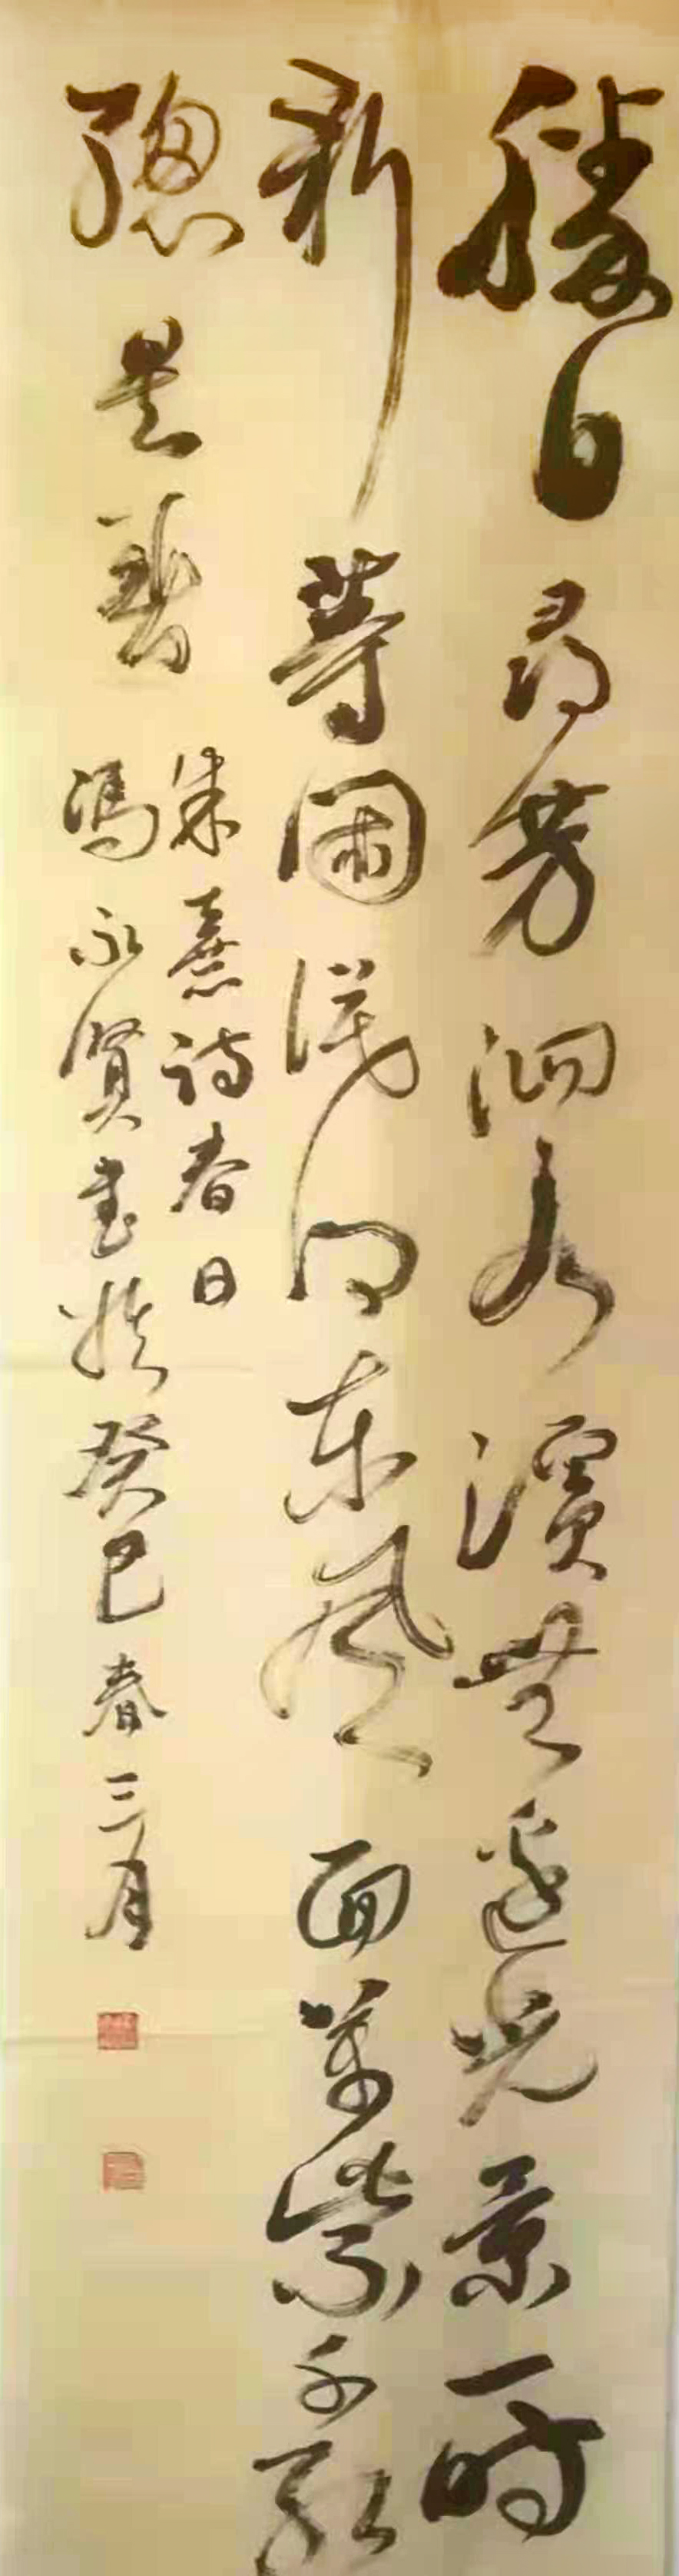 勝日尋芳泗水濱無邊光景一時
新等閑識得東風面萬紫千紅
總是春
朱熹詩春日
馮永賢書於癸巳春三月